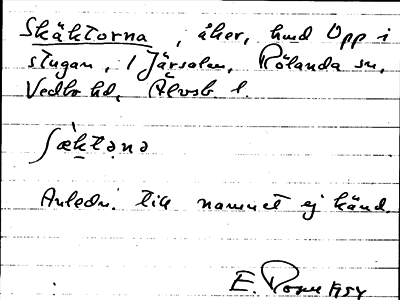 Skäktorna, åker, hmd Upp i
stugan, 1 Järsalen, Rölanda sn,
Vedbo hd, Älvsb l.
ʃæ̀ktəṇə
Anledn. till namnet ej känd.
E.